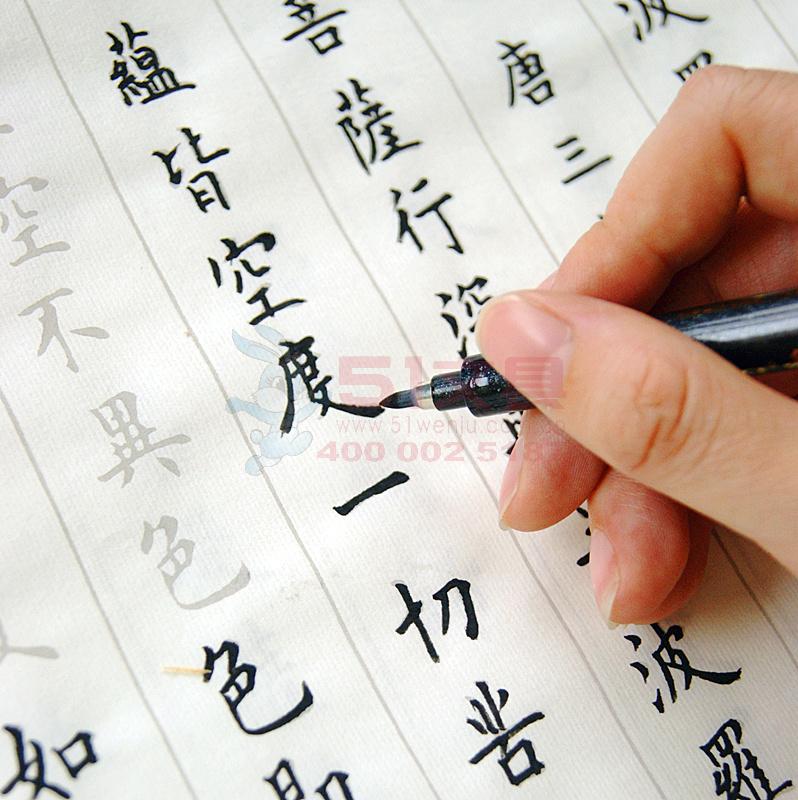 波羅
唐三
菩薩行深波羅
蘊皆空度一切苦
空不異色色即
如
51文具
www.51wenju.com
400 002